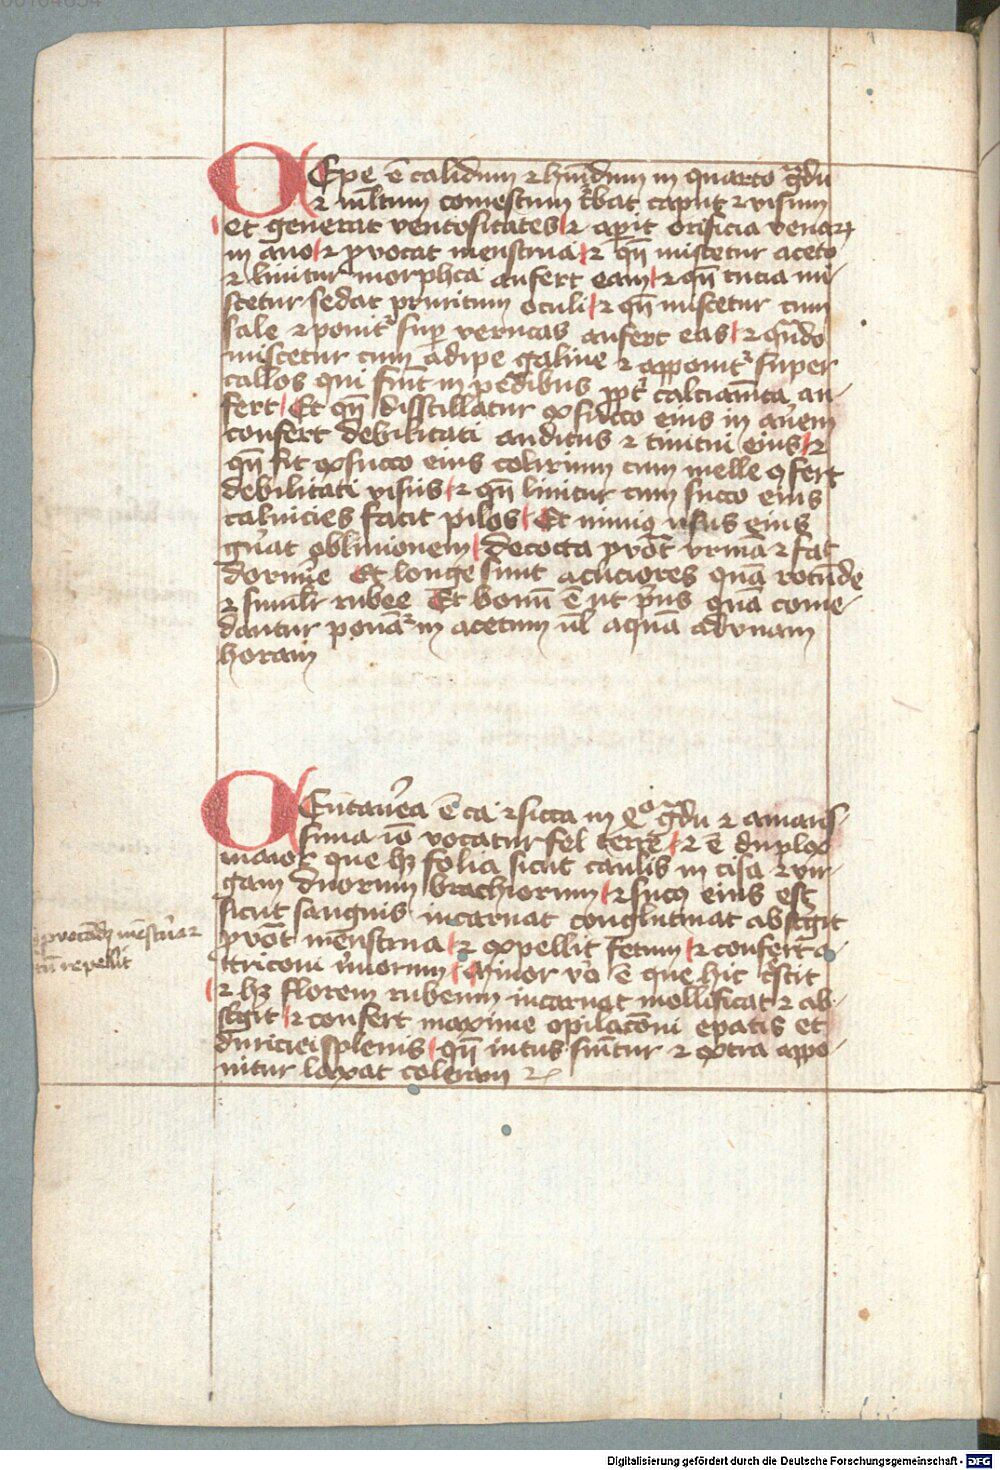 CEpe ē calidum ⁊ humidum in quarto gͣdu
⁊ mltum comestum tͬbat caput ⁊ visum
et generat ventositates ⁊ aꝑit orificia venaꝝ
in ano ⁊ ꝓvocat menstrua ⁊ qn̄ miscetur aceto
⁊ linitur morphea aufert eam ⁊ qn̄ tucia mi-
scetur sedat pruritum oculi ⁊ qn̄ miscetur cum
sale ⁊ ponitͬ suꝑ verucas aufert eas ⁊ qn̄do
miscetur cum adipe galine ⁊ apponitͬ super
callos qui fiūt in pedibus ꝓptͬ calciam̄ta au-
fert Et qn̄ distillatur ex succo eius in aurem
confert debilitati auditus ⁊ tinitui eius ⁊
qn̄ fit ex succo eius colirium cum melle ꝯfert
debilitati visus ⁊ qn̄ linitur cum succo eius
caluicies facit pilos Et nimiꝯ usus eius
gn̄at obliuionem decocta ꝓvōt vrinā ⁊ fac̄
dormire Et longe sunt acuciores quā rotūde
⁊ simulr̄ rubee Et bonū ē ut prius quā come-
dantur ponāͬ in acetum ul̄ aquā ad vnam
horam
CEntaurea ē ca ⁊ sicca in 2ͦ gͣdu ⁊ amaris-
sima iō vocatur fel terre ⁊ ē duplex
maior que hꝫ folia sicut caulis in cisa ⁊ vir-
gam duorum brachiorum ⁊ sucꝯ eius est
sicut sanguis incarnat conglutinat abstͬgit
ꝓvōt menstrua ⁊ expellit fetum ⁊ confert
minor vͦ ē que hic crescit
⁊ hꝫ florem rubeum incarnat mollificat ⁊ ab-
stͬgit ⁊ confert maxime opilacōni epatis et
duriciei splenis qn̄ intus sumitur ⁊ extra appo-
nitur laxat coleram ⁊c
ꝓvocādꝫ mēstrua ⁊
repellit
Digitalisierung gefördert durch die Deutsche Forschungsgemeinschaft - DFG